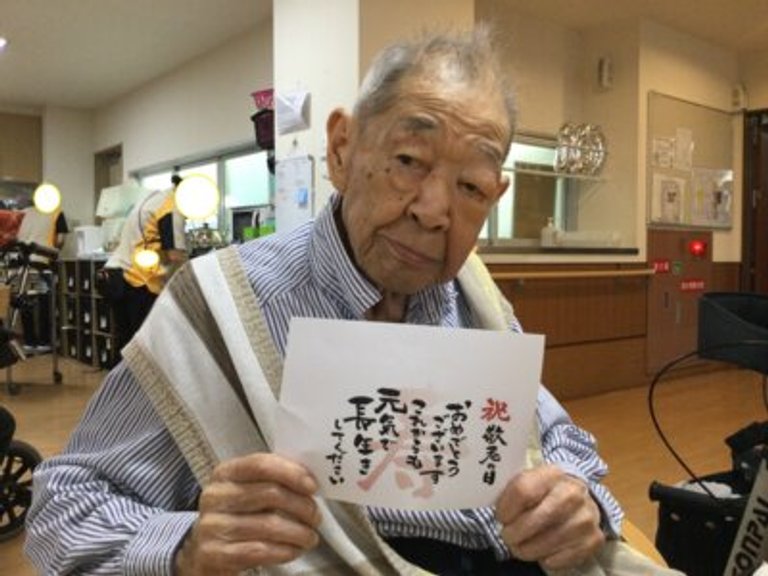 祝 敬老の日
おめでとう
ございます
これからも
元気で
長生き
してください